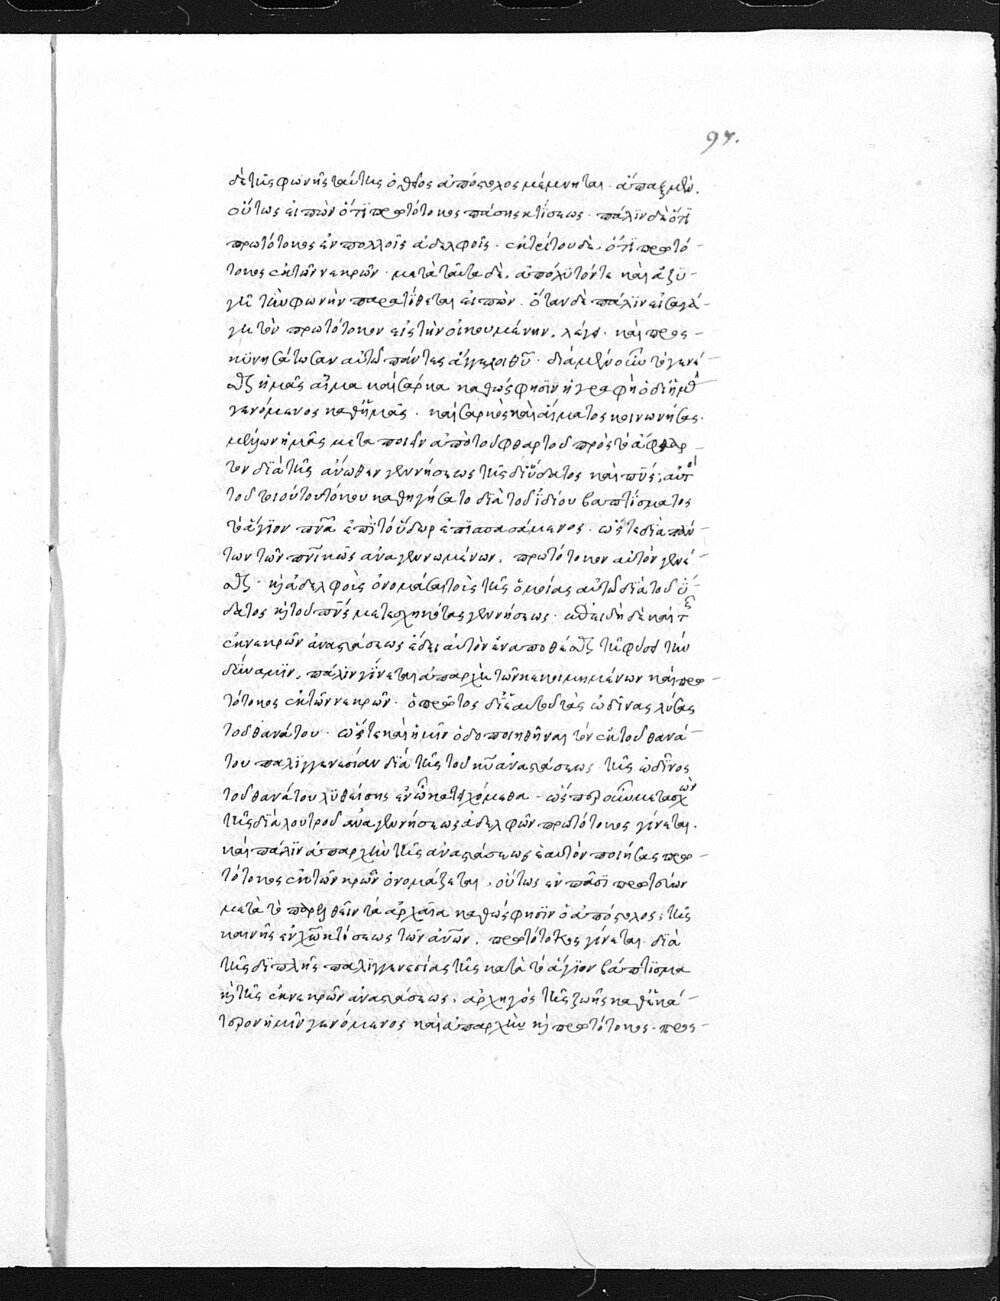 97.
δὲ τῆς φωνῆς ταύτης ὁ θεῖος ἀπόστολος μέμνηται· ἅπαξ μὲν,
οὕτως εἰπὼν ὅτι πρωτότοκος πάσης κτίσεως· πάλιν δὲ ὅτι
πρωτότοκος ἐν πολλοῖς ἀδελφοῖς· ἐκ τρίτου δὲ, ὅτι πρωτό-
τοκος ἐκ τῶν νεκρῶν· μετὰ ταῦτα δὲ, ἀπολύτόν τε καὶ ἀζυ-
γῆ τὴν φωνὴν παρατίθεται εἰπὼν. ὅταν δὲ πάλιν εἰσαγά-
γη τὸν πρωτότοκον εἰς τὴν οἰκουμένην, λέγει· καὶ προσ-
κυνησάτωσαν αὐτῷ πάντες ἄγγελοι θῦ·
αἷμα καὶ σάρκα καθώς φησιν ἡ γραφὴ ὁ δι' ἡμᾶς
γενόμενος καθ' ἡμᾶς· καὶ σαρκὸς καὶ αἵματος κοινωνήσας.
ἡμᾶς μετα ποιεῖν ἀπὸ τοῦ φθαρτοῦ πρὸς τὸ ἄφθαρ-
τον διὰ τῆς ἄνωθεν γεννήσεως τῆς δι' ὕδατος καὶ πνς, αὐτὸς
τοῦ τοιούτου τόκου καθηγήσατο διὰ τοῦ ἰδίου βαπτίσματος
τὸ ἅγιον πνα ἐπὶ τὸ ὕδωρ ἐπισπασάμενος· ὥστε διὰ πάν
των τῶν πνικῶς ἀναγεννωμένων, πρωτότοκον αὐτὸν γενέ-
σθαι· κὶ ἀδελφοὺς ὀνομάσαι τοὺς τῆς ὁμοίας αὐτῷ διὰ τοῦ ὕ-
δατος κὶ τοῦ πνς μετεσχηκότας γεννήσεως· ἐπειδὴ δὲ καὶ τῆς
ἐκ νεκρῶν ἀναστάσεως ἔδει αὐτὸν ἐναποθέσθαι τῇ φύσει τὴν
δύναμιν, πάλιν γίνεται ἀπαρχὴ τῶν κεκοιμημένων καὶ πρω
τότοκος ἐκ τῶν νεκρῶν· ὁ πρῶτος δι' ἑαυτοῦ τὰς ὠδῖνας λύσας
τοῦ θανάτου· ὥστε καὶ ἡμῖν ὁδοποιηθῆναι τὸν ἐκ τοῦ θανά-
του παλιγγενεσίαν διὰ τῆς τοῦ κυ ἀναστάσεως· τῆς ὠδῖνος
τοῦ θανάτου λυθείσης ἐν ᾧ κατειχόμεθα· ὥσπερ οὖν μετασχὼν
τῆς διὰ λουτροῦ ἀναγεννήσεως ἀδελφῶν πρωτότοκος γίνεται.
καὶ πάλιν ἀπαρχὴν τῆς ἀναστάσεως ἑαυτὸν ποιήσας πρω-
τότοκος ἐκ τῶν νεκρῶν ὀνομάζεται, οὕτως ἐν πᾶσι πρωτεύων
μετὰ τὸ παρελθεῖν τὰ ἀρχαῖα καθώς φησιν ὁ ἀπόστολος, τῆς
καινῆς ἐν χῶ κτίσεως τῶν ἀνων, πρωτότοκος γίνεται διὰ
τῆς διπλῆς παλιγγενεσίας τῆς κατὰ τὸ ἅγιον βάπτισμα
κὶ τῆς ἐκ νεκρῶν ἀναστάσεως, ἀρχηγὸς τῆς ζωῆς καθ' ἑκά-
τερον ἡμῖν γενόμενος καὶ ἀπαρχὴ κὶ πρωτότοκος· προσ-